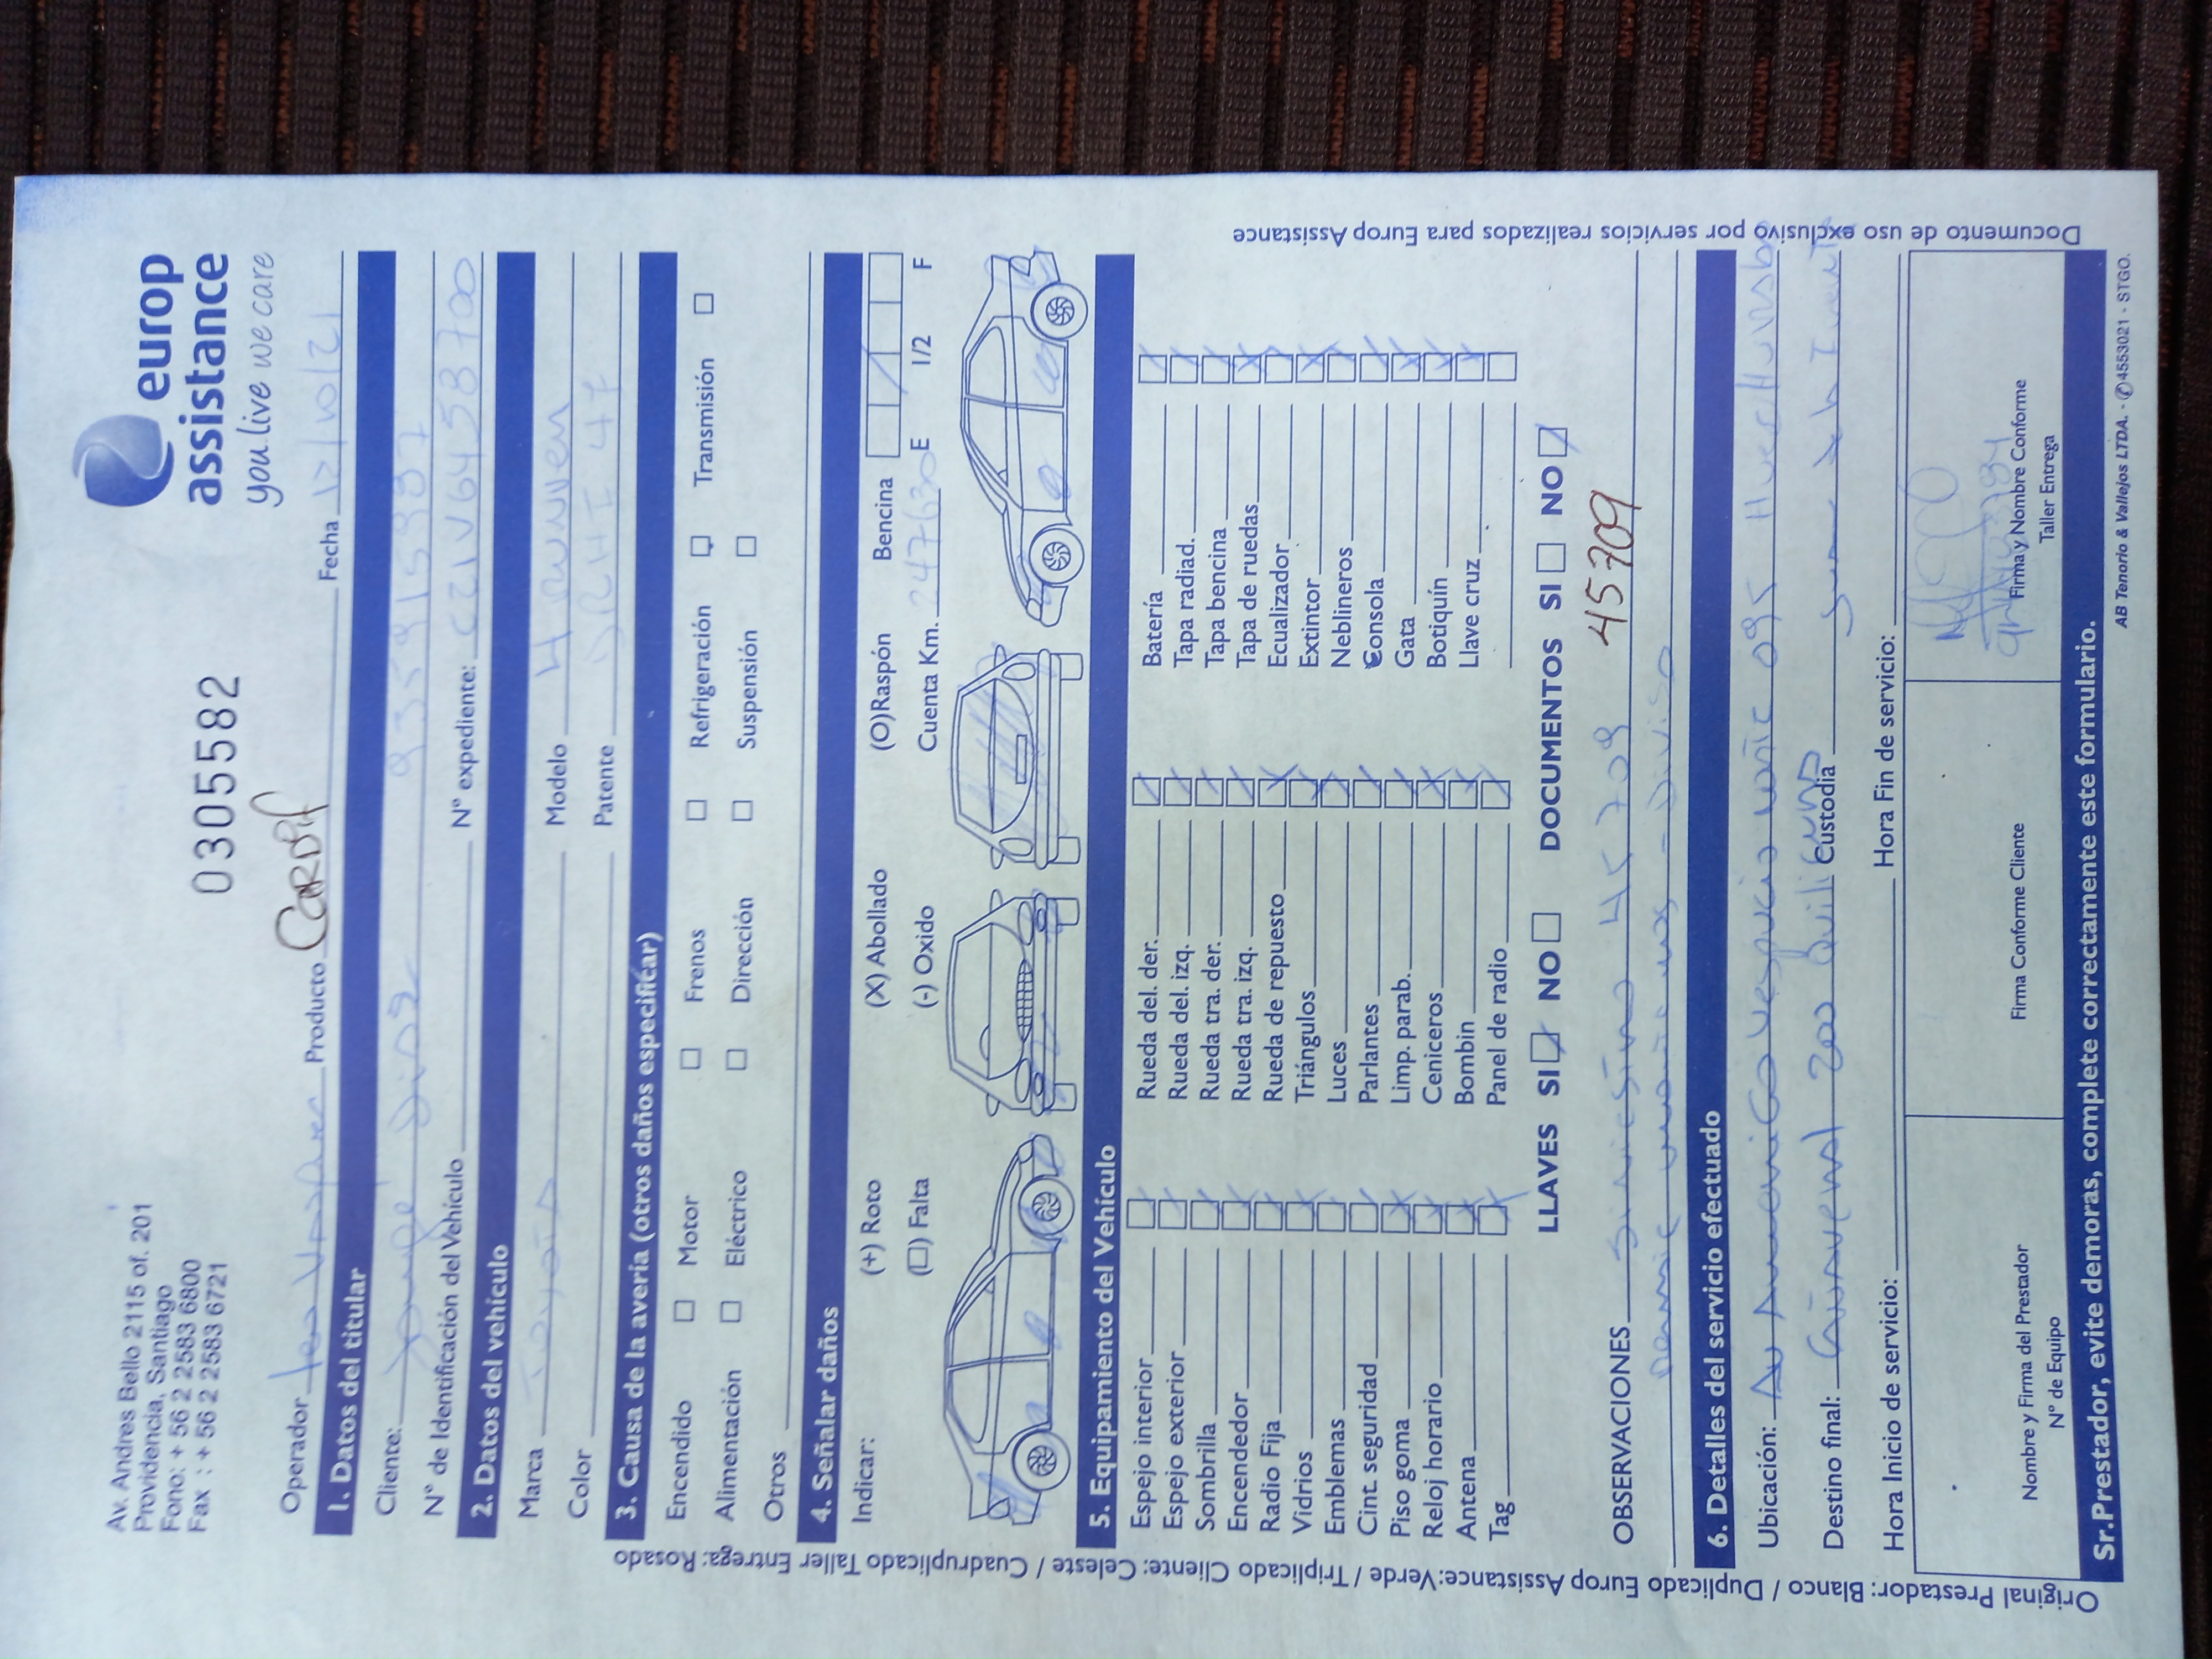 Av. Andres Bello 2115 of. 201
Providencia, Santiago
Fono: + 56 2 2583 6800
Fax : + 56 2 2583 6721
0305582
europ
assistance
you live we care
Operador Producto Cardif Fecha 12/10/21
1. Datos del titular
Cliente: 935915987
N° de Identificación del Vehículo N° expediente:
2. Datos del vehículo
Marca Toyota Modelo 4 Runner
Color Patente
3. Causa de la avería (otros daños especificar)
Encendido Motor Frenos Refrigeración Transmisión
Alimentación Eléctrico Dirección Suspensión
Otros
4. Señalar daños
Indicar: (+) Roto (X) Abollado (O)Raspón Bencina
(□) Falta (-) Oxido Cuenta Km. 247630 E 1/2 F
5. Equipamiento del Vehículo
Espejo interior Rueda del. der. Batería
Espejo exterior Rueda del. izq. Tapa radiad.
Sombrilla Rueda tra. der. Tapa bencina
Encendedor Rueda tra. izq. Tapa de ruedas
Radio Fija Rueda de repuesto Ecualizador
Vidrios Triángulos Extintor
Emblemas Luces Neblineros
Cint. seguridad Parlantes Consola
Piso goma Limp. parab. Gata
Reloj horario Ceniceros Botiquín
Antena Bombin Llave cruz
Tag Panel de radio
LLAVES SI NO DOCUMENTOS SI NO
OBSERVACIONES Siniestro 45709 45709
6. Detalles del servicio efectuado
Ubicación: Av Americo Vespucio 095 Huechuraba
Destino final: 200 Quilicura Custodia
Hora Inicio de servicio: Hora Fin de servicio:
Nombre y Firma del Prestador
N° de Equipo
Firma Conforme Cliente
Firma y Nombre Conforme
Taller Entrega
Sr. Prestador, evite demoras, complete correctamente este formulario.
AB Tenorio & Vallejos LTDA. - ✆4553021 - STGO.
Original Prestador: Blanco / Duplicado Europ Assistance: Verde / Triplicado Cliente: Celeste / Cuadruplicado Taller Entrega: Rosado
Documento de uso exclusivo por servicios realizados para Europ Assistance